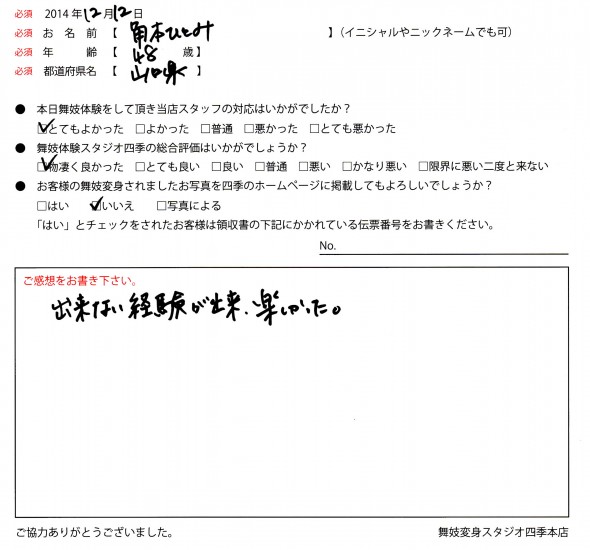 必須 2014年12月12日
必須 お名前【 角本ひとみ 】(イニシャルやニックネームでも可)
必須 年齢【 48 歳】
必須 都道府県名【 山口県 】
● 本日舞妓体験をして頂き当店スタッフの対応はいかがでしたか?
☑とてもよかった □よかった □普通 □悪かった □とても悪かった
● 舞妓体験スタジオ四季の総合評価はいかがでしょうか?
☑物凄く良かった □とても良い □良い □普通 □悪い □かなり悪い □限界に悪い二度と来ない
● お客様の舞妓変身されましたお写真を四季のホームページに掲載してもよろしいでしょうか?
□はい ☑いいえ □写真による
「はい」とチェックをされたお客様は領収書の下記にかかれている伝票番号をお書きください。
No.
ご感想をお書き下さい。
出来ない経験が出来、楽しかった。
ご協力ありがとうございました。
舞妓変身スタジオ四季本店